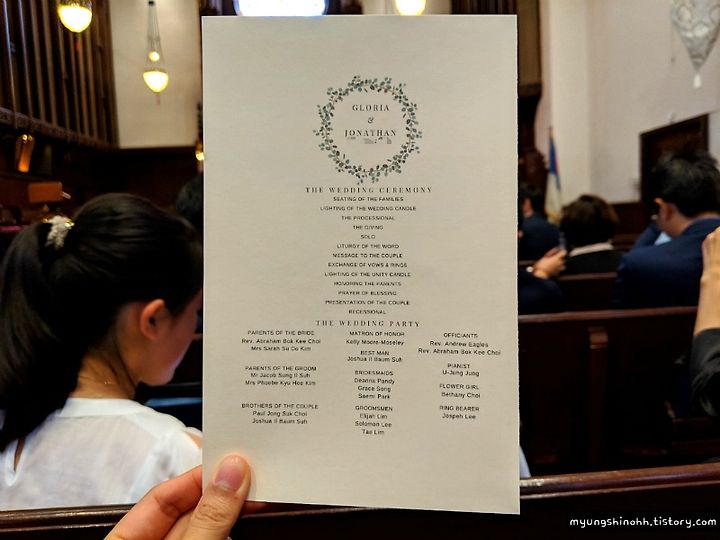 GLORIA
&
JONATHAN
THE WEDDING CEREMONY
SEATING OF THE FAMILIES
LIGHTING OF THE WEDDING CANDLE
THE PROCESSIONAL
THE GIVING
SOLO
LITURGY OF THE WORD
MESSAGE TO THE COUPLE
EXCHANGE OF VOWS & RINGS
LIGHTING OF THE UNITY CANDLE
HONORING THE PARENTS
PRAYER OF BLESSING
PRESENTATION OF THE COUPLE
RECESSIONAL
THE WEDDING PARTY
PARENTS OF THE BRIDE
Rev. Abraham Bok Kee Choi
Mrs Sarah Su Do Kim
PARENTS OF THE GROOM
Mr Jacob Sung Il Suh
Mrs Phoebe Kyu Hee Kim
BROTHERS OF THE COUPLE
Paul Jong Suk Choi
Joshua Il Baum Suh
MATRON OF HONOR
Kelly Moore-Moseley
BEST MAN
Joshua Il Baum Suh
BRIDESMAIDS
Deanna Pandy
Grace Song
Saemi Park
GROOMSMEN
Elijah Lim
Solomon Lee
Tae Lim
OFFICIANTS
Rev. Andrew Eagles
Rev. Abraham Bok Kee Choi
PIANIST
U-Jung Jung
FLOWER GIRL
Bethany Choi
RING BEARER
Jospeh Lee
myungshinohh.tistory.com